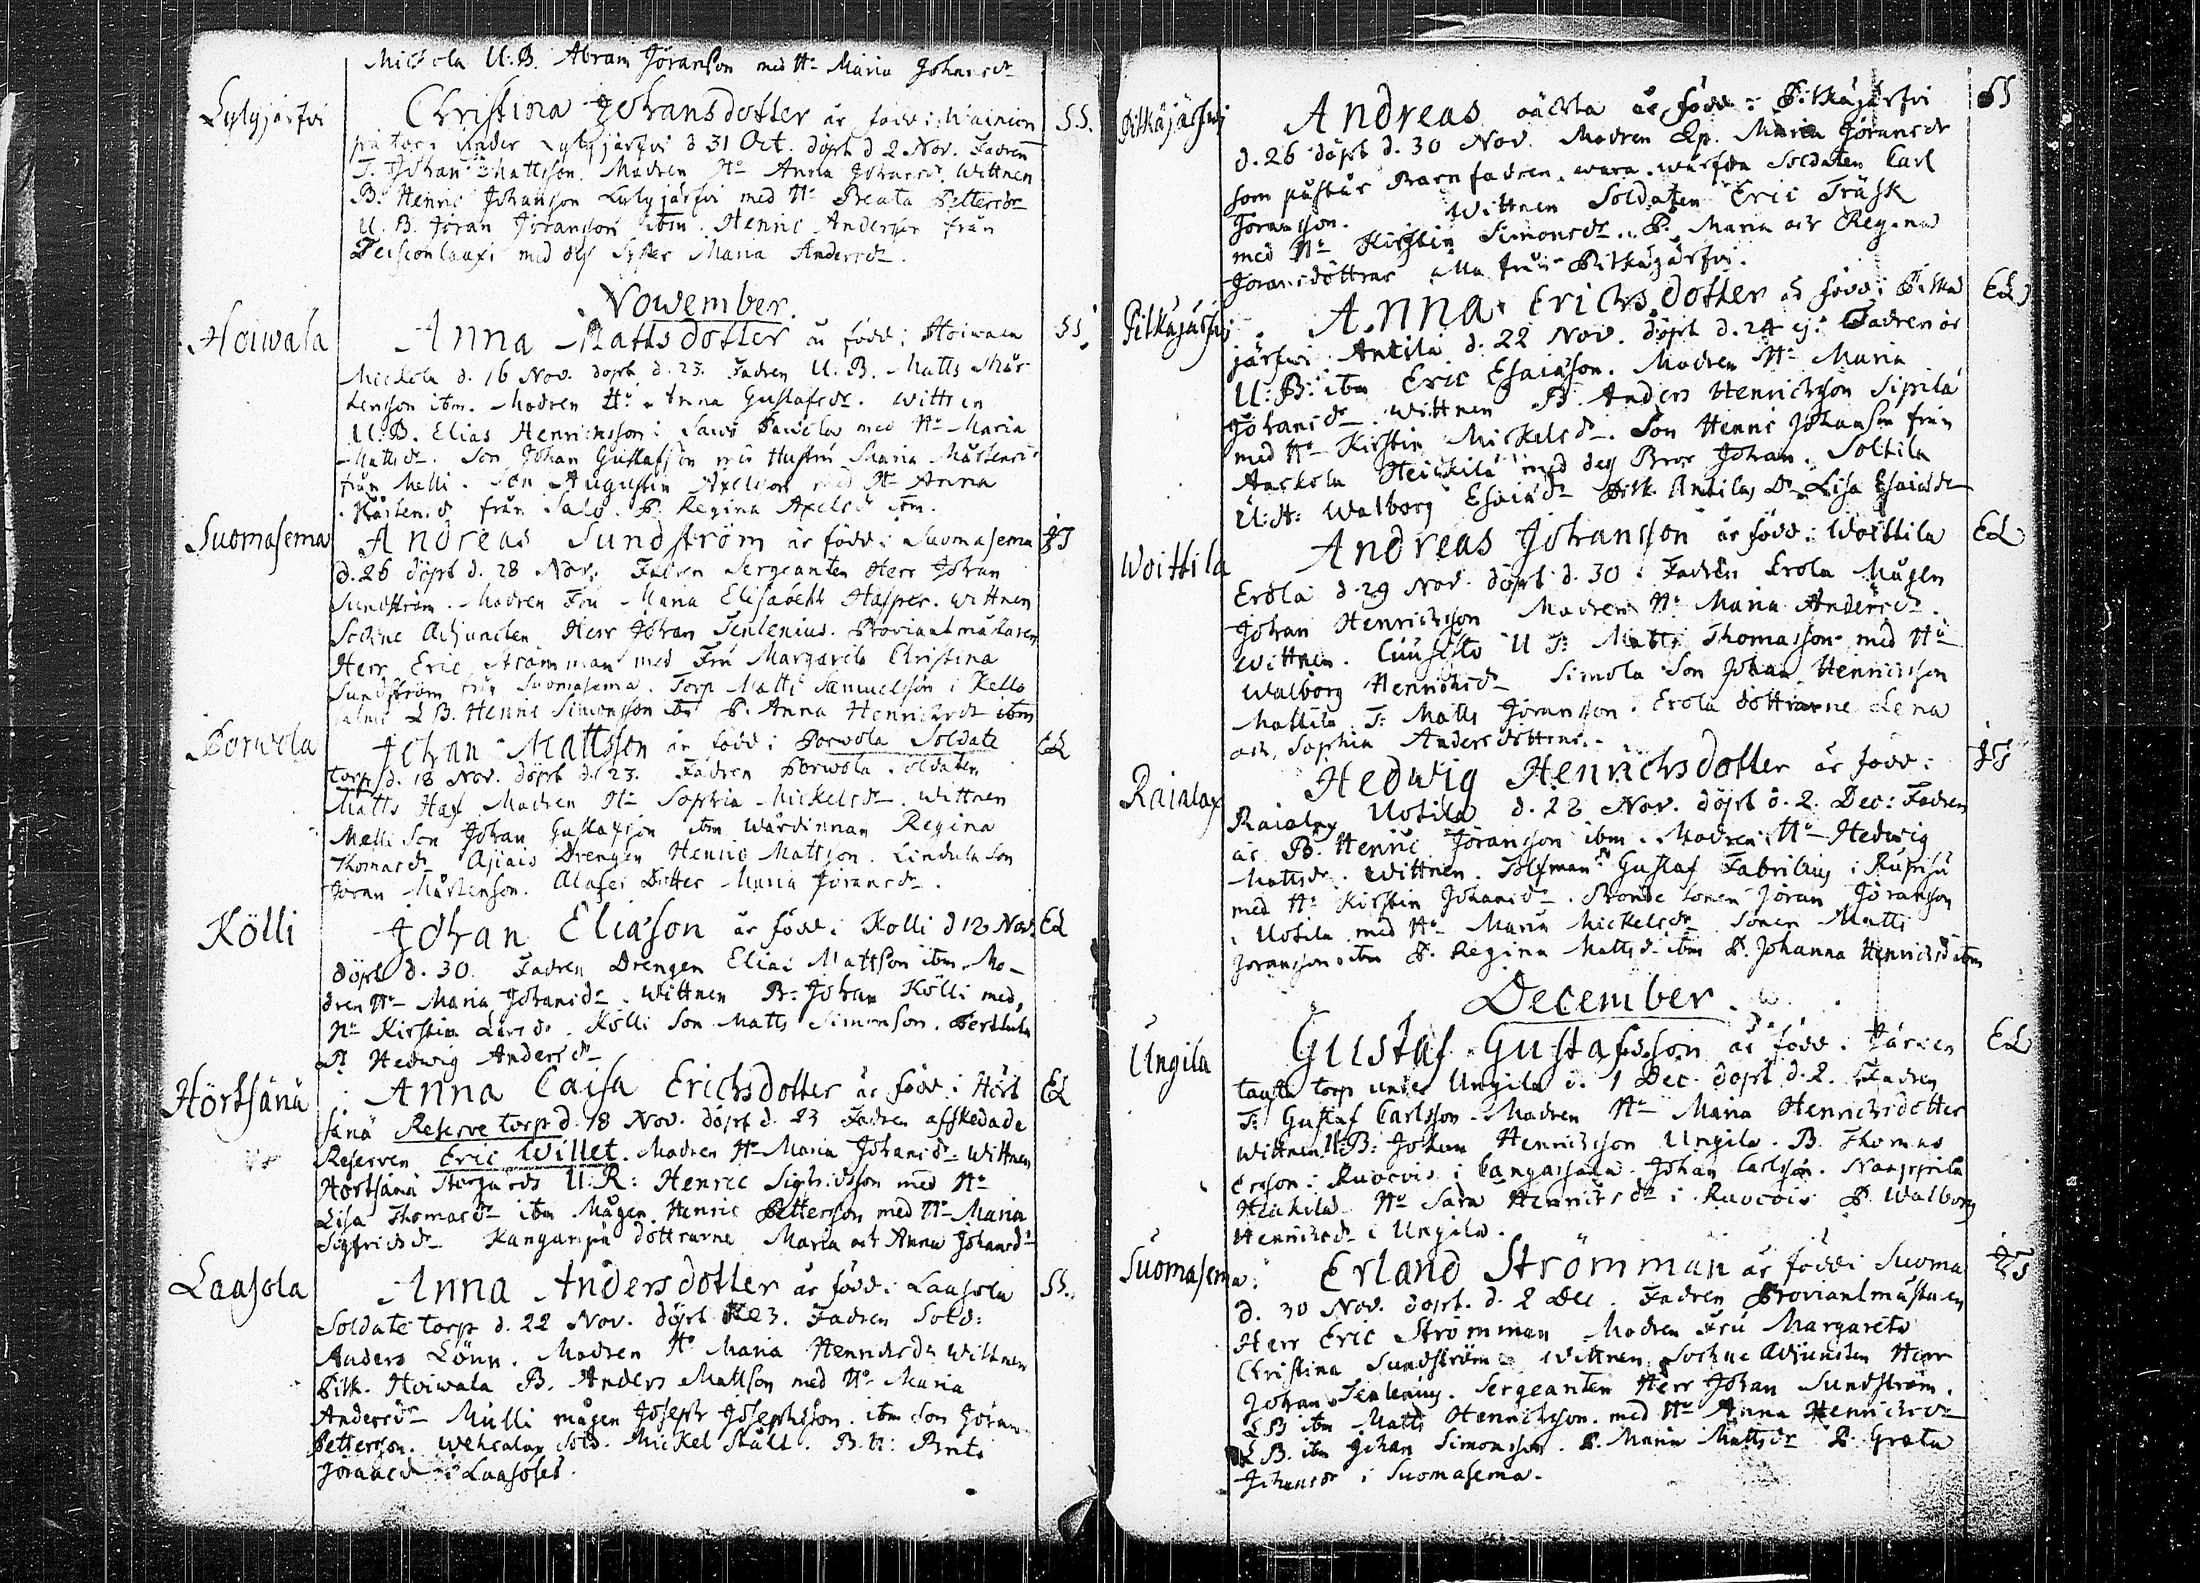 U:B. Abram Jöranson med Ho Maria Johansdr
Lylyjärfvi Christina Johansdotter är född i SS.
torp under Lylyjärfvi d 31 Oct. döpt d 2 Nov. Fadren
T. Johan Mattsson. Modren Ho Anna Johansdr. Wittnen
B. Henric Johanson Lylyjärfvi med Ho Beata Pettersdr
U.B. Jöran Jöranson ibm. Henric Anderson från
med dess Syster Maria Andersdr.
Nowember.
Hoiwala Anna Mattsdotter är född i Hoiwala SS.
Mickola d. 16 Nov. döpt d. 23. Fadren U.B. Matts Mår-
tensson ibm. Modren Ho Anna Gustafsdr. Wittnen
U.B. Elias Henricksson i med Ho Maria
Mattsdr. Son Johan Gustafsson med Hustru Maria Mårtensdr
från Melli. Son Augustin Axelson med Ho Anna
från Salo. P. Regina Axelsdr ibm.
Suomasema Andreas Sundström är född i Suomasema
d. 26 döpt d. 28 Nov. Fadren Sergeanten Herr Johan
Sundström. Modren Fru Maria Elisabeth Hasper. Wittnen
Sockne Adjuncten Herr Johan Tenlenius. Proviantmästaren
Herr Eric Strömman med Fru Margareta Christina
Sundström från Suomasema. Torp Matts Samuelsson i Kello
salmi LB. Henric Simonsson ibm P. Anna Henricksdr ibm
Porwola Johan Mattsson är född i Porwola Soldate EL
torp d. 18 Nov. döpt d. 23. Fadren Porwola Soldaten
Matts Haf. Modren Ho Sophia Mickelsdr. Wittnen
Melli Son Johan Gustafsson ibm Wärdinnan Regina
Thomasdr Ajiais Drengen Henric Mattson. Lindula Son
Jöran Mårtenson. Alasei Dotter Maria Jöransdr.
Kölli Johan Eliason är född i Kölli d 12 Nov. EL
döpt d. 30. Fadren Drengen Elias Mattson ibm. Mo-
dren Ho Maria Johansdr. Wittnen B: Johan Kölli med
Ho Kirstin Larsdr. Kölli Son Matts Simonson. Perttula
P. Hedwig Andersdr
Hörtsänä Anna Caisa Erichsdotter är född i Hört EL
sänä Reserve torp d. 18 Nov. döpt d. 23 Fadren afskedade
Reserven Eric Willet. Modren Ho Maria Johansdr. Wittnen
Hörtsänä Storgårds U:R: Henric Sigfridsson med Ho
Lisa Thomasdr ibm. Mågen Henric Pettersson med Ho Maria
Sigfridsdr Kangarpä döttrarne Maria och Anna Johansdr
Laasola Anna Andersdotter är född i Laasola SS.
Soldate torp d. 22 Nov. döpt 23. Fadren Sold:
Anders Lönn. Modren Ho Maria Henricksdr Wittnen
Pitk. Hoiwala B. Anders Mattson med Ho Maria
Andersdr Mulli mågen Joseph Josephsson. ibm Son Jöran
Petterson. Wehcalax Sold. Mickel Ståll. Brita
Jöransdr i Laasola.
Pitkäjärfwi Andreas oäckta är född i Pitkäjärfvi SS
d. 26 döpt d. 30 Nov. Modren Ep. Maria Jöransdr
som påstår Barnfadren wara wärfda Soldaten Carl
Joransson. Wittnen Soldaten Eric Träsk
med Ho Kirstin Simonsdr. P. Maria och Regina
Joransdöttrar alla från Pitkäjärfvi.
Pitkäjärfvi Anna Erichsdotter är född i Pitkä EL
järfwi Antila d. 22 Nov. döpt d. 24 ej. Fadren är
U:B: ibm Eric Esaiasson. Modren Ho Maria
Johansdr. Wittnen B. Anders Henricksson Sipilä
med Ho Kirstin Mickelsdr. Son Henric Johanson från
Aackola Heickilä med dess Bror Johan. Soltila
U:H: Walborg Esaiædr Pitk. Antilas Dr. Lisa Esaiædr
Woittila Andreas Johansson är född i Woittila EL
Erola d. 29 Nov. döpt d. 30. Fadren Erola Mågen
Johan Henricksson Modren Ho Maria Andersdr.
Wittnen. U T: Matts Thomasson med Ho
Walborg Henricksdr Simola Son Johan Henricksson
Mattila T: Matts Jöransson. Erola döttrarne Lena
och Sophia Andersdöttrar.
Raialax Hedwig Henrichsdotter är född i
Raialax Uotila d. 28 Nov. döpt d. 2. Dec: Fadren
är B. Henric Jöransson ibm. Modren Ho Hedwig
Mattsdr. Wittnen. Tolfman Gustaf Fabrilius i
med Ho Kirstin Johansdr. Bonde sonen Jöran Jöranson
i Uotila med Ho Maria Mickelsdr sonen Matts
Joransson ibm P. Regina Mattsdr ibm P. Johanna Henricksdr ibm
December.
Ungila Gustaf Gustafsson är född i EL
torp under Ungila d. 1 Dec. döpt d. 2. Fadren
T: Gustaf Carlsson. Modren Ho Maria Henrichsdotter
Wittnen U:B: Johan Henricksson Ungila. B. Thomas
Ersson i Ruocois i Cangasala. Johan Carlsson.
Heickilä Ho Sara Henricksdr i Ruocois P. Walborg
Henricksdr i Ungila.
Suomasema Erland Strömman är född i Suoma
d. 30 Nov. döpt. d. 2 Dec. Fadren Proviantmästaren
Herr Eric Strömman Modren Fru Margareta
Christina Sundström. Wittnen Sockne Adjuncten Herr
Johan Tenlenius. Sergeanten Herr Johan Sundström.
LB ibm Matts Henricksson. med Ho Anna Henricksdr
LB. ibm Johan Simonsson. P. Maria Mattsdr P. Greta
Johansdr i Suomasema.